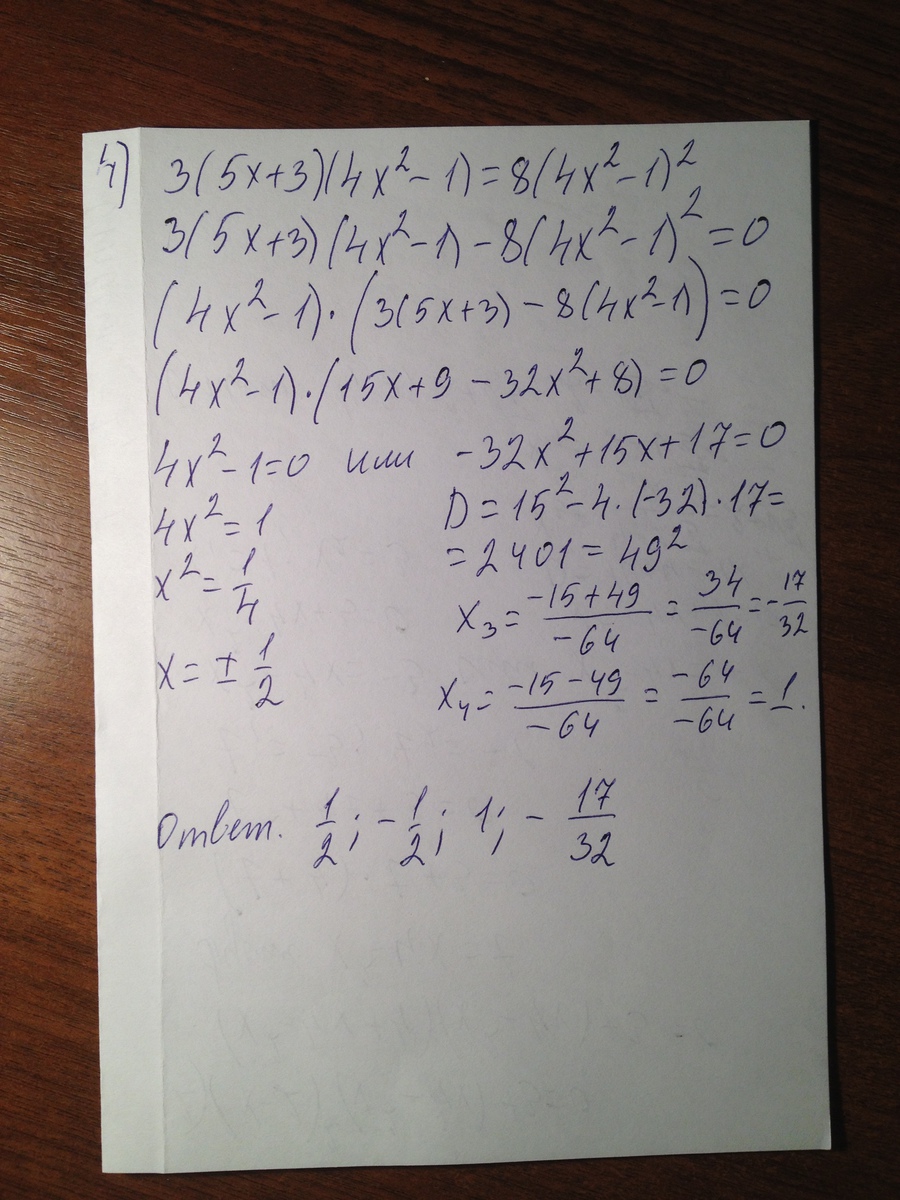 4) 3(5x+3)(4x²-1)=8(4x²-1)²
3(5x+3)(4x²-1)-8(4x²-1)²=0
(4x²-1)·(3(5x+3)-8(4x²-1))=0
(4x²-1)·(15x+9-32x²+8)=0
4x²-1=0 или -32x²+15x+17=0
4x²=1
x²=1/4
x=±1/2
D=15²-4·(-32)·17=
=2401=49²
x₃=(-15+49)/(-64)=34/(-64)=-17/32
x₄=(-15-49)/(-64)=(-64)/(-64)=1.
Ответ. 1/2; -1/2; 1; -17/32